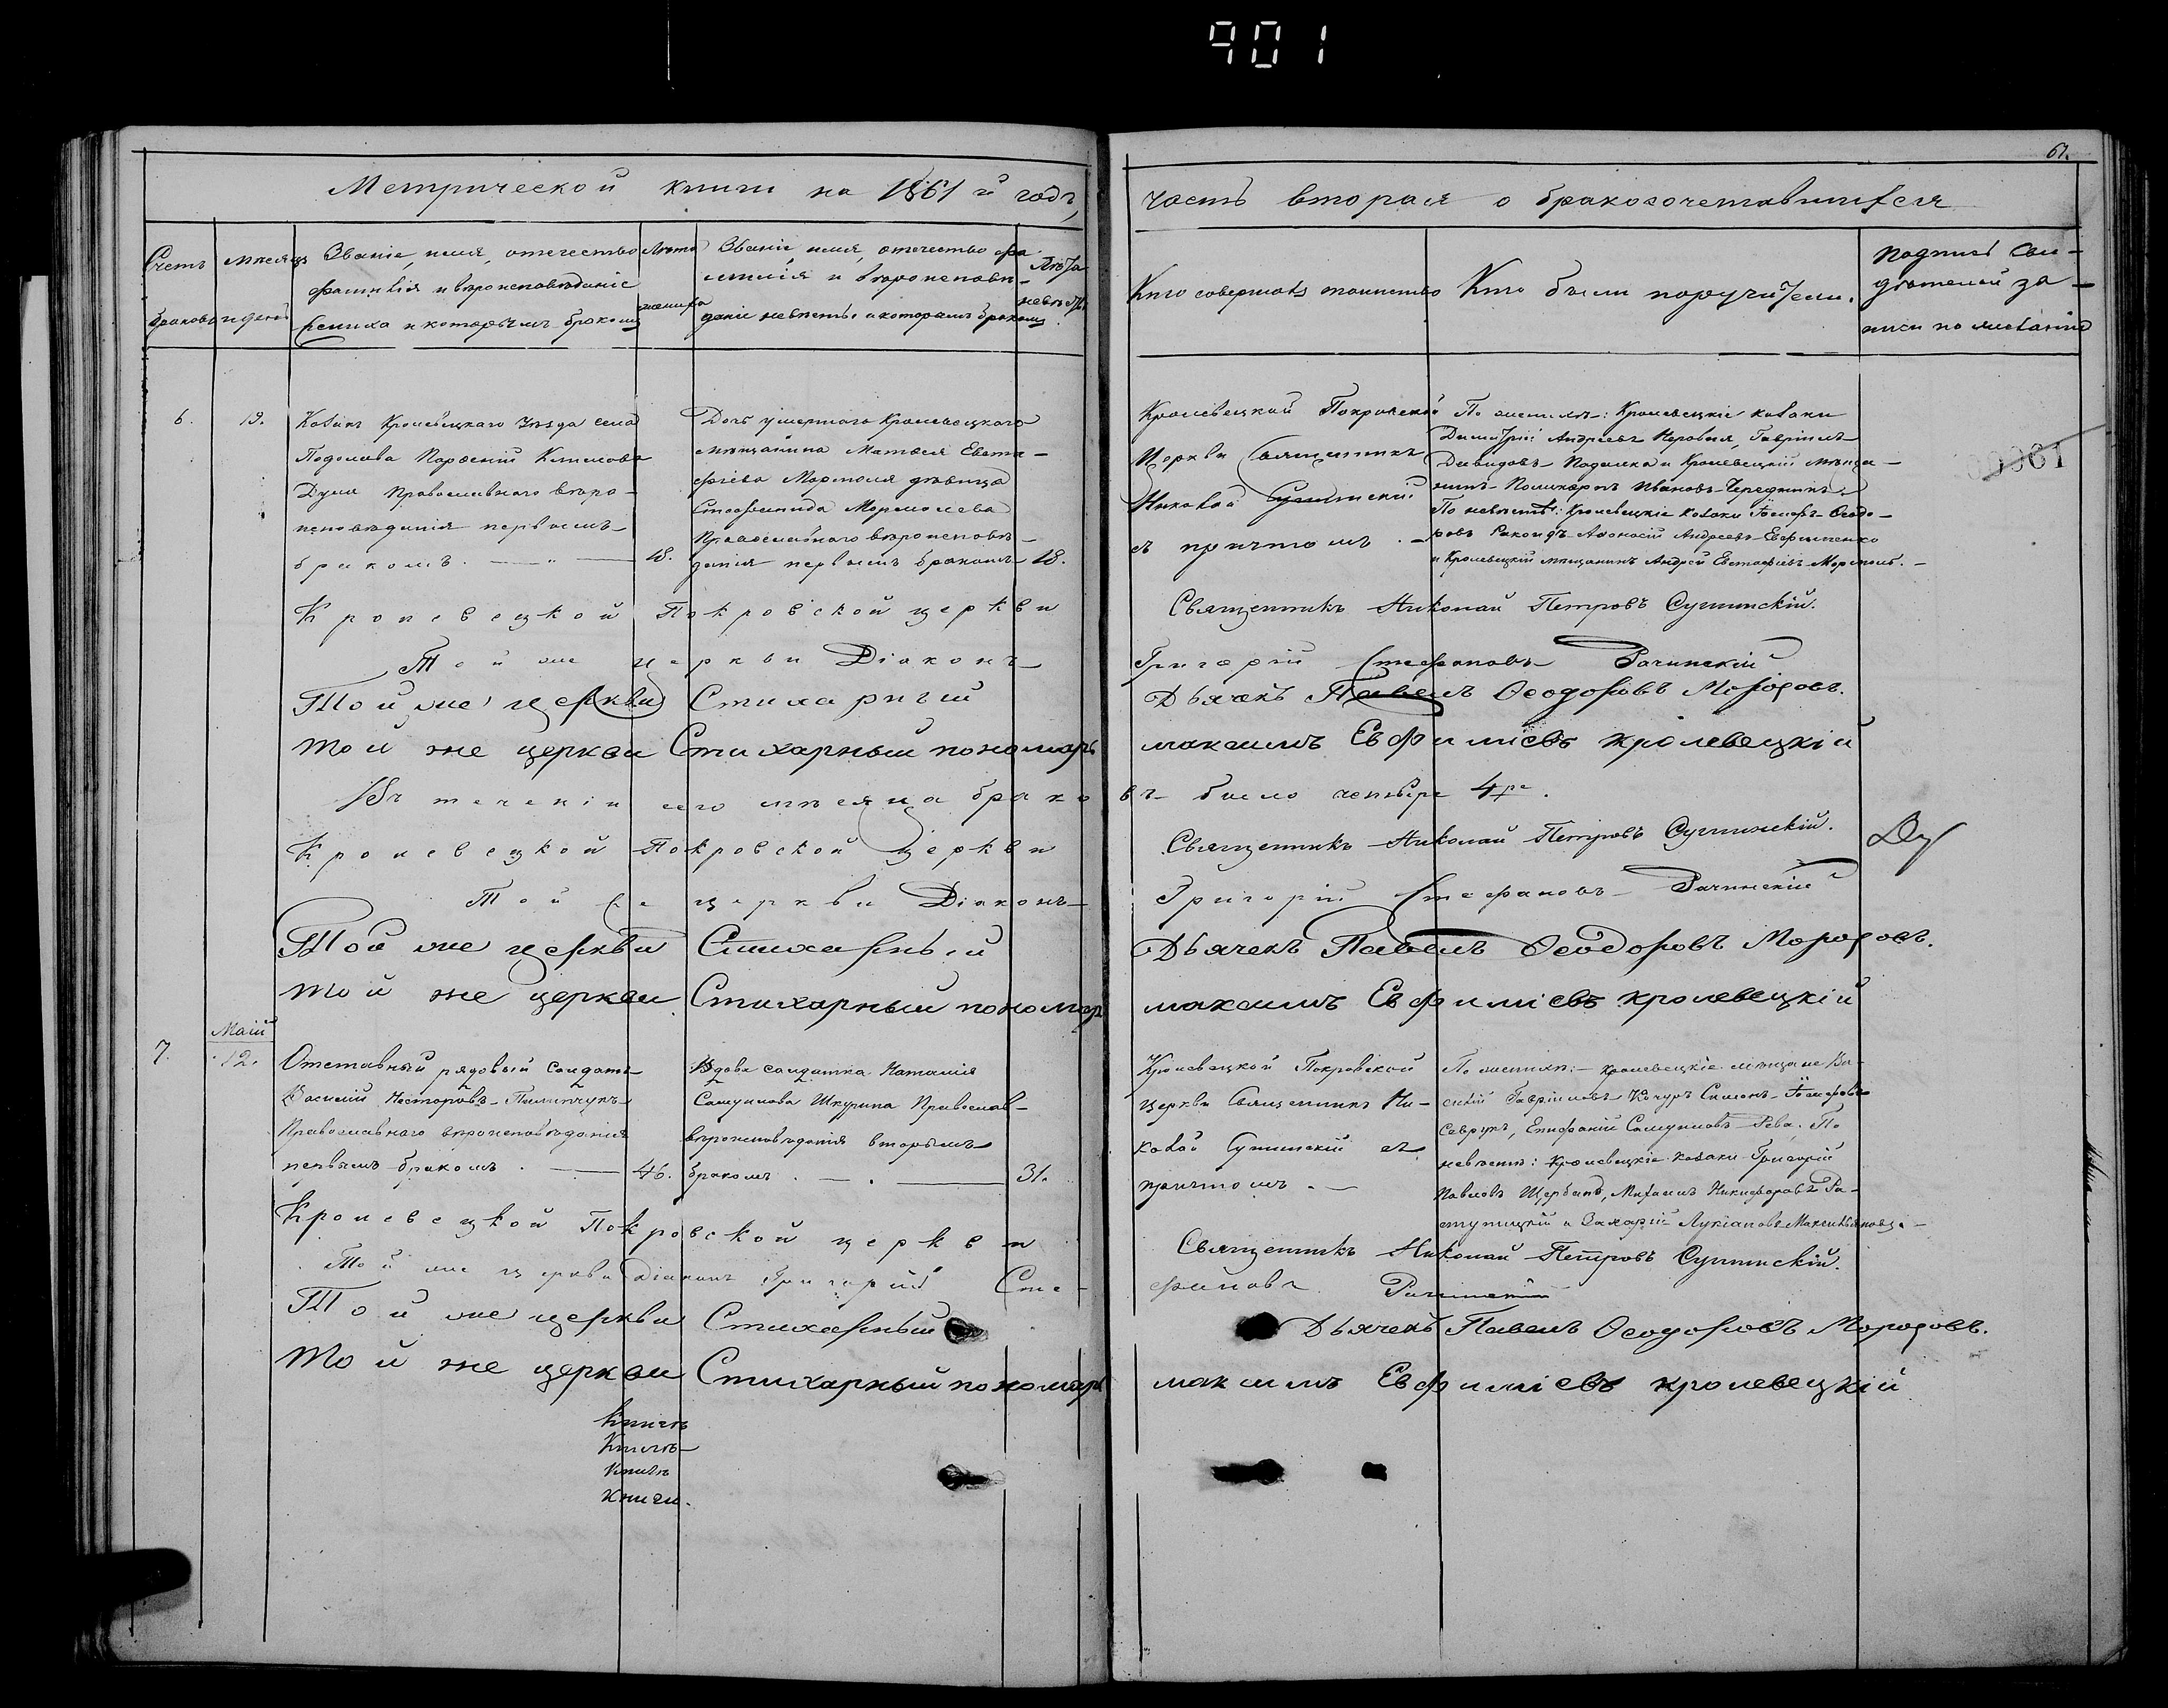 901
61.
Метрической книги на 1861 й годъ,
часть вторая о бракосочетавшихся
Счетъ
браковъ
месяцъ
и день
Званіе, имя, отечество
фамилія и вероисповѣданіе
жениха и которымъ бракомъ
Лета
жениха
Званіе, имя, отечество фа-
милія и вероисповѣ-
даніе невѣсты и которымъ бракомъ
Лѣта
невѣсты
Кто совершалъ таинство
Кто были поручители.
подпись сви-
дѣтелей за-
писи по желанію
6.
19.
Козакъ Кролевецкаго Уѣзда села
Подолова Парѳеній Климовъ
Дума Православнаго вѣро-
исповѣданія первымъ
бракомъ.
18.
Дочь умершаго Кролевецкаго
мѣщанина Матвея Евста-
фіева Мормоля дѣвица
Стефанида Мормолева
Православнаго вѣроисповѣ-
данія первымъ бракомъ
18.
Кролевецкой Покровской
Церкви Священникъ
Николай Сушинскій
съ причтомъ.
По женихѣ: Кролевецкіе козаки
Димитрій Андреевъ Неровня, Гавріилъ
Давидовъ Подымка и Кролевецкій мѣща-
нинъ Поликарпъ Ивановъ Чередникъ
По невѣстѣ: Кролевецкіе козаки Іосифъ Ѳеодо-
ровъ Аѳонасій Андреевъ Ефименко
и Кролевецкій мѣщанинъ Андрей Евстафіевъ Мормоль.
Кролевецкой Покровской церкви
Священникъ Николай Петровъ Сушинскій.
Той же церкви Діаконъ
Григорій Стефановъ Рачинскій
Той же церкви Стихарный
Дьячекъ Павелъ Ѳеодоровъ Морозовъ.
той же церкви Стихарный пономарь
максимъ Евфиміевъ кролевецкій
Въ теченіи сего мѣсяца брако
въ было четыре 4ре.
Кролевецкой Покровской Церкви
Священникъ Николай Петровъ Сушинскій.
Той же церкви Діаконъ
Григорій Стефановъ Рачинскій
Той же церкви Стихарный
Дьячекъ Павелъ Ѳеодоровъ Морозовъ.
той же церкви Стихарный пономар
максимъ Евфиміевъ кролевецкій
7.
Маій
12.
Отставный рядовый солдатъ
Василій Несторовъ Пилипчукъ
Православнаго вѣроисповѣданія
первымъ бракомъ.
46.
Вдова солдатка Наталія
Самуилова Шкурина Православ-
вѣроисповѣданія вторымъ
бракомъ.
31.
Кролевецкой Покровской
церкви Священникъ Ни-
колай Сушинскій съ
причтомъ.
По женихѣ: кролевецкіе мѣщане Ва-
силій Гавріиловъ Качуръ Симеонъ Іосифовъ
Саврукъ, Епифаній Самуиловъ Рева. По
невѣстѣ: Кролевецкіе козаки Григорій
Павловъ Щербакъ, Михаилъ Никифоровъ Ра-
ступцкій и Захарій Лукіановъ
Кролевецкой Покровской церкви
Священникъ Николай Петровъ Сушинскій.
Той же церкви Діаконъ Григорій Сте-
фановъ Рачинскій
Той же церкви Стихарный
Дьячекъ Павелъ Ѳеодоровъ Морозовъ.
той же церкви Стихарный пономарь
максимъ Евфиміевъ кролевецкій
Книгъ
Книгъ
Книгъ
Книги.